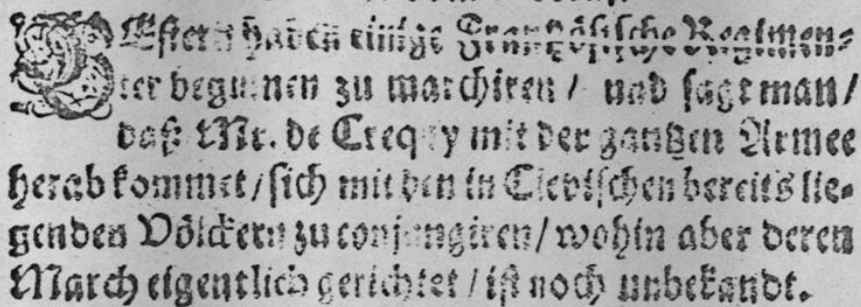 GEstern haben einige Frantzösische Regimen-
ter begunnen zu marchiren / und sagt man /
daß Mr. de Crequy mit der gantzen Armee
herab kommet / sich mit den in Clevischen bereits lie-
genden Völckern zu conjungiren / wohin aber deren
March eigentlich gerichtet / ist noch unbekandt.